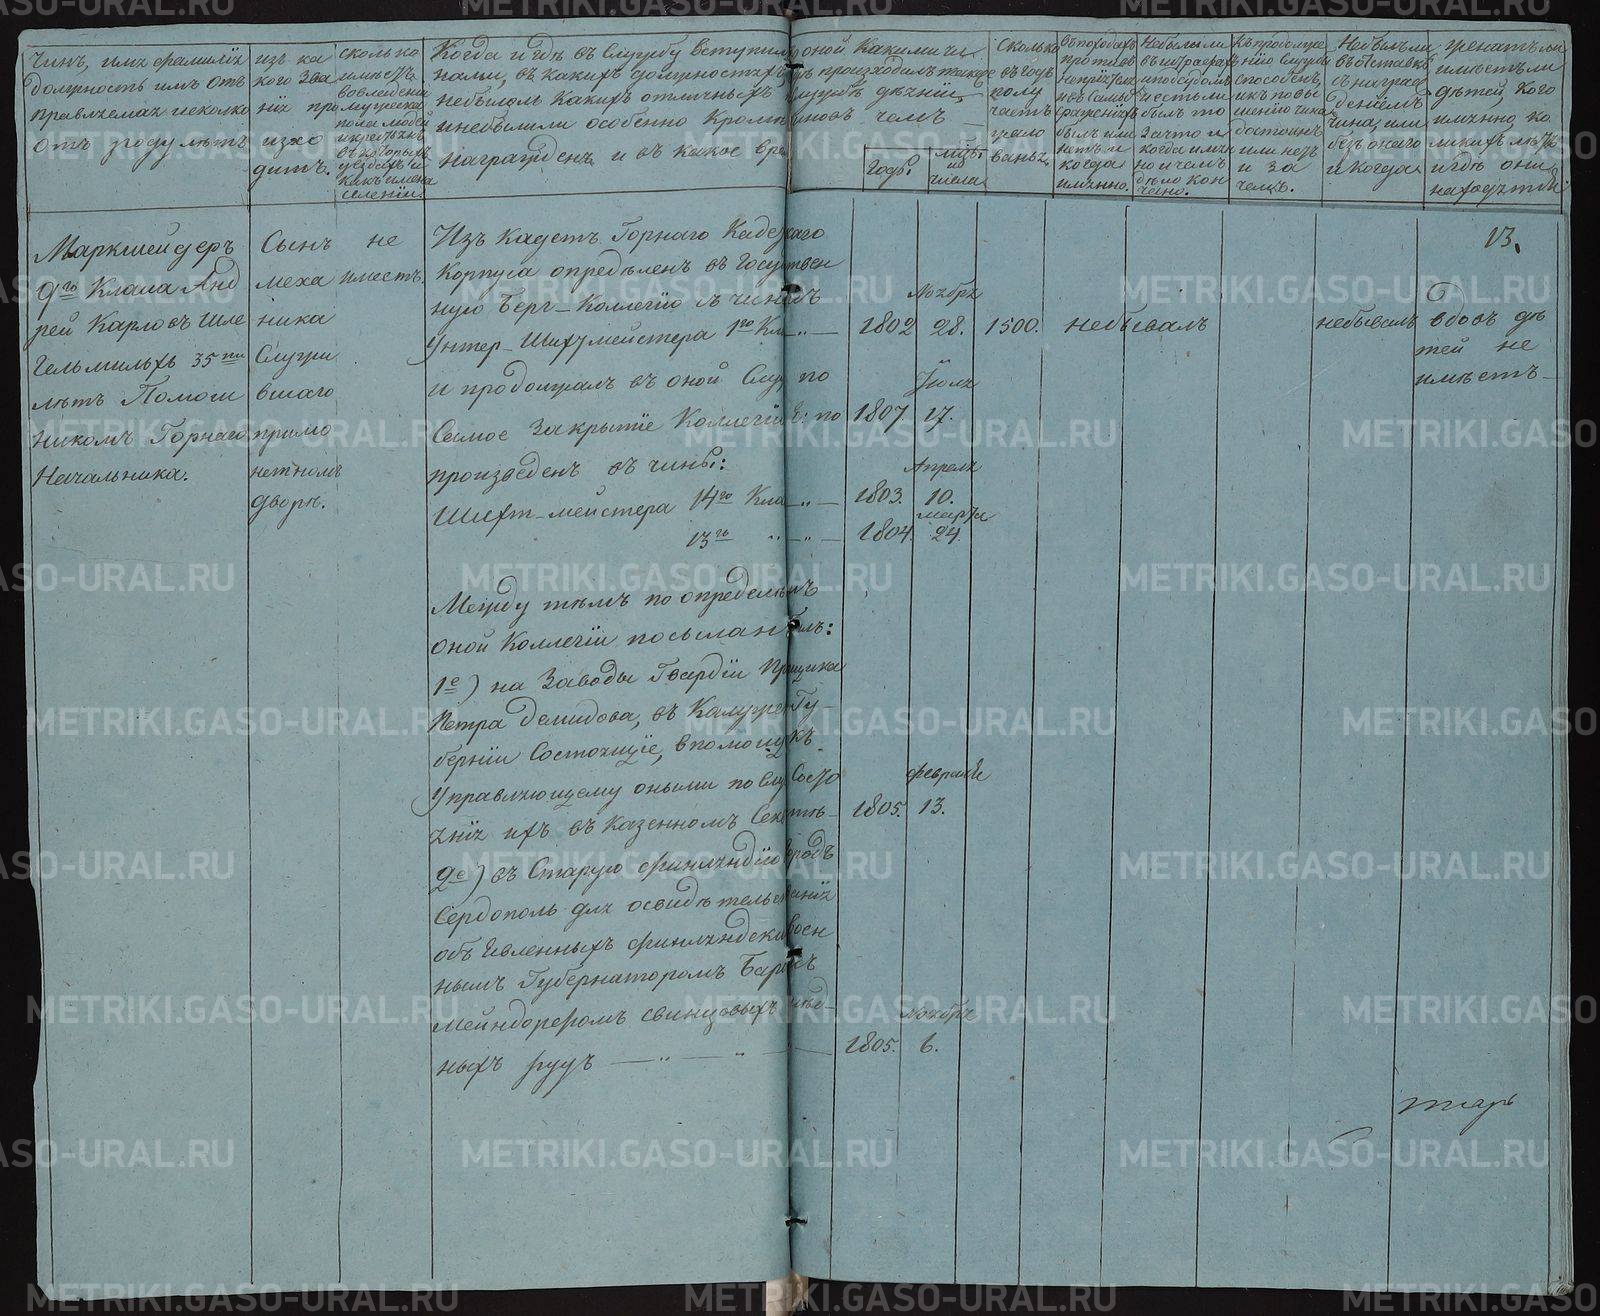 Чинъ, имя фамилія
должность имъ от
правляемая и сколко
отъ роду лѣтъ
изъ ка
кого зва
нія про
изхо
дитъ.
сколько
имѣетъ
во владѣніи
мужеска
пола людей
и крестьянъ
въ которыхъ
уѣздахъ и
какъ имена
селеній.
Когда и гдѣ въ службу вступилъ оной какими чи
нами, въ какихъ должностяхъ произходилъ также
небыло ль какихъ отличныхъ дѣяній,
и небылъ ли особенно кромѣ чиновъ чемъ
награжденъ и въ какое вре
Годы.
мцы
и
числа
Сколько
въ году
полу
чаетъ
жало
ванья.
въ походахъ
противъ
непріятеля
и въ самыхъ
сраженіяхъ
былъ или
нетъ и
когда
имянно.
Небылъ ли
въ штрафахъ
и подсудомъ
и естьли
былъ то
за что и
когда имя
но и чемъ
дѣло кон
чено.
Къ продолже
нію службы
способенъ
и къ повы
шенію чина
достоинъ
или нетъ
и за
чемъ.
Небылъ ли
въ отставкѣ
съ награж
деніемъ
чина, или
безъ онаго
и когда
женатъ ли
имѣетъ ли
дѣтей, кого
имянно, ка
кихъ лѣтъ
и гдѣ они
находятся
13.
Маркшейдеръ
9го Класа Анд
рей Карловъ Шле
Гельмильхъ 35ти
лѣтъ Помощ
никомъ Горнаго
Начальника.
Сынъ
меха
ника
Служи
вшаго
примо
нетномъ
дворѣ.
не
имеетъ.
Изъ кадетъ Горнаго Кадетскаго
Корпуса опредѣленъ въ Государствен
ную Бергъ-Коллегію съ чиномъ
Унтер-Шихтмейстера 1го Кла — 1802 Ноября 28. 1500. небывалъ небывалъ
Вдовъ дѣ
тей не
имѣетъ
и продолжалъ въ оной Служ по
самое закрытіе Коллегіи по 1807. Іюля 17.
произведенъ въ чины:
Шихт-мейстера 14го Кла — 1803. Апреля 10.
13го — 1804. марта 24.
Между тѣмъ по опредѣленію
оной Коллегіи посыланъ былъ:
1е) на Заводы Гвардіи Прапорщика
Петра Демидова, въ Калужской Гу-
берніи Состоящіе, в помощь къ
Управляющему оными по Случаю Состо
янія ихъ въ Казенномъ Секвестрѣ — 1805. февраля 13.
2е) въ Старую Финляндію въ городъ
Сердополь для освидѣтельствованія
объявленныхъ Финляндскимъ Воен
нымъ Губернаторомъ Барономъ
Мейндорфомъ свинцовыхъ и мѣд-
ныхъ рудъ — 1805. Ноября 6.
тарь